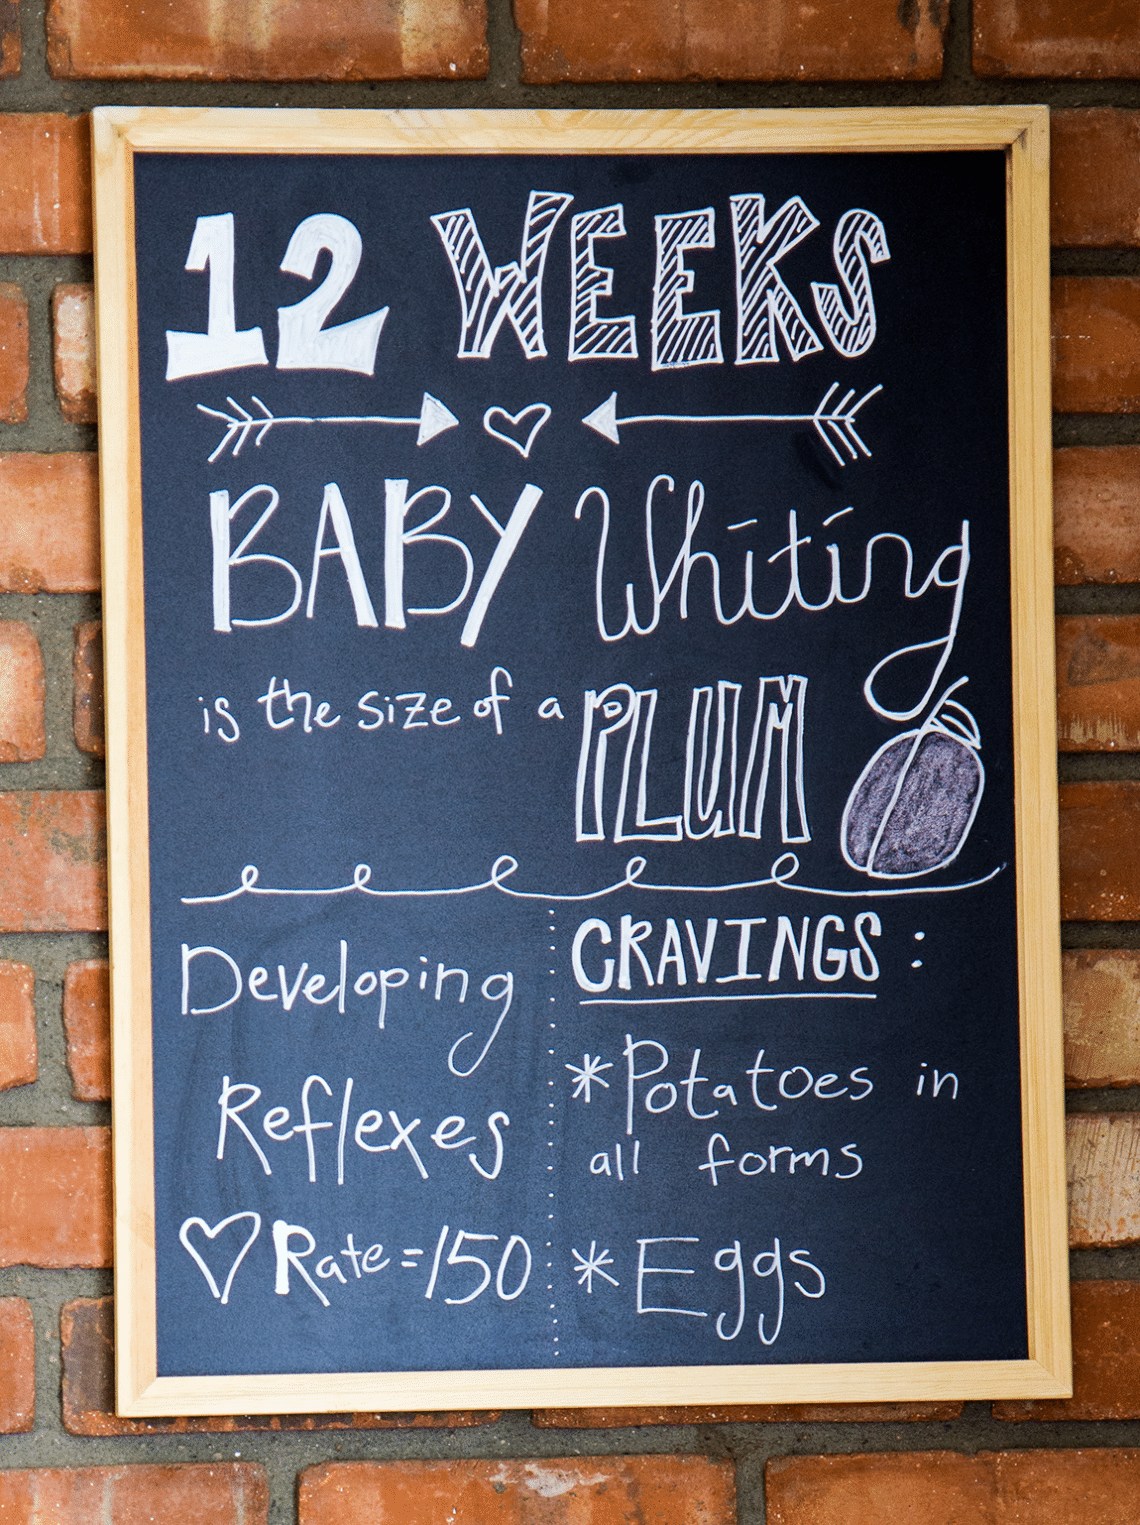 12 WEEKS
BABY Whiting
is the size of a PLUM
Developing
Reflexes
♡ Rate = 150
CRAVINGS:
* Potatoes in
all forms
* Eggs